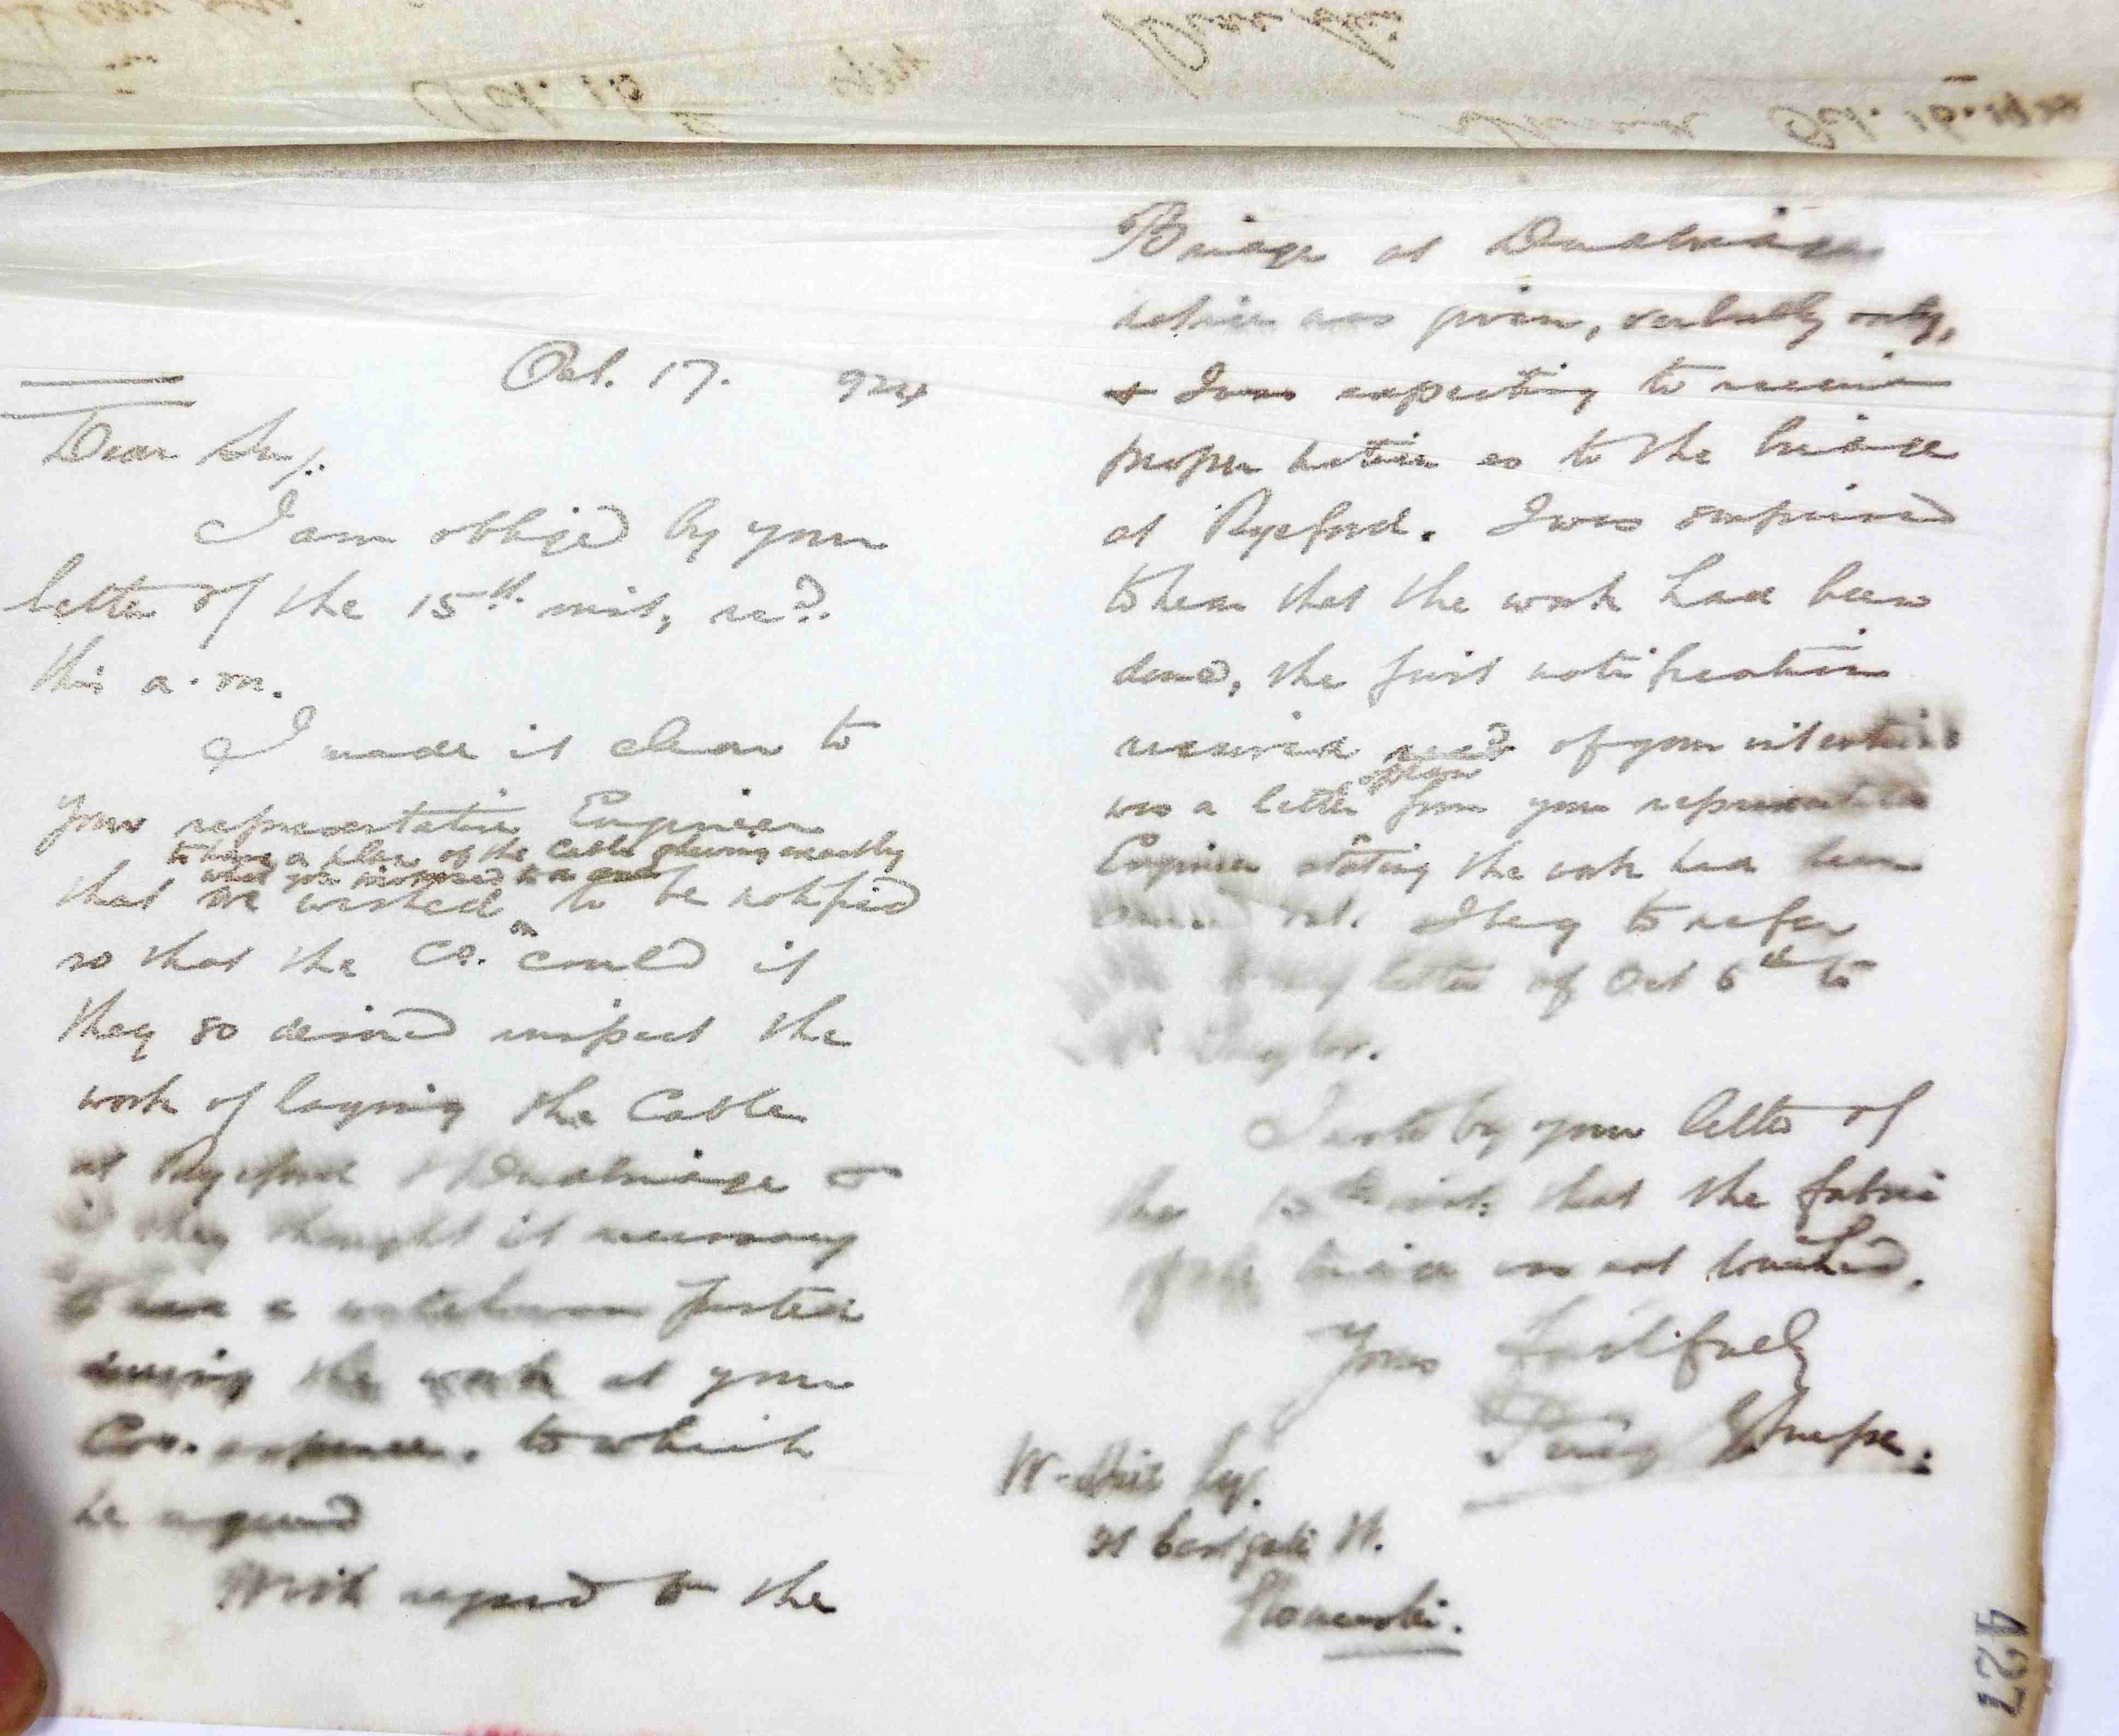 Oct. 17. 924
Dear Sir/.
I am obliged by your
letter of the 15th. inst, recd.
this a.m.
I made it clear to
your representative Engineer
to have a plan of the cable showing exactly
what you proposed to
that we wished to be notified
so that the Co. could if
they so desired inspect the
work of laying the Cable
at Ryeford & Dudbridge &
if they thought it necessary
to have a watchman posted
during the work at your
Cos. expense, to which
he agreed
With regard to the
Bridge at Dudbridge
notice was given, verbally only,
& I was expecting to receive
proper notice as to the bridge
at Ryeford. I was surprised
to hear that the work had been
done, the first notification
received recd of your intention
was a letter from your representative
Engineer stating the work had been
out. I beg to refer
my letter of Oct 6th to
Taylor.
I note by your letter of
the 15th inst: that the fabric
of the bridge was not touched.
Yours faithfully
W. Esq.
Eastgate St.
Gloucester.
427